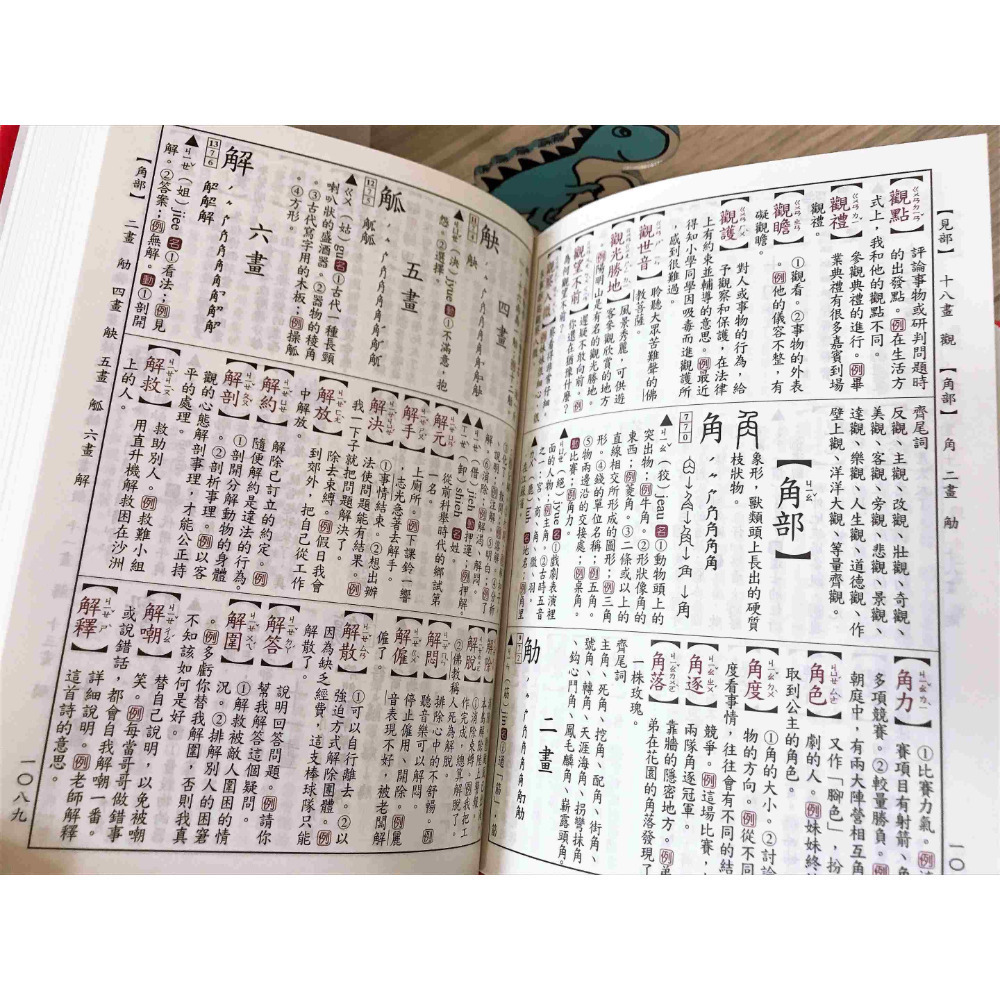 【見部】 十八畫 觀 【角部】 角 二畫 觔
【觀點】
評論事物或研判問題時
的出發點。例在生活方
式上,我和他的觀點不同。
【觀禮】
參觀典禮的進行。例畢
業典禮有很多嘉賓到場
觀禮。
【觀瞻】
①觀看。②事物的外表
。例他的儀容不整,有
礙觀瞻。
【觀護】
對人或事物的行為,給
予觀察和保護,在法律
上有約束並輔導的意思。例最近
得知小學同學因吸毒而進觀護所
,感到很難過。
【觀世音】
聆聽大眾苦難聲的佛
教菩薩。
【觀光勝地】
風景秀麗,可供遊
客參觀欣賞的地方
。例陽明山是有名的觀光勝地。
【觀望不前】
遲疑不敢向前。例
你還在猶豫什麼?
為何觀望不前?
齊尾詞
反觀、主觀、改觀、壯觀、奇觀、
美觀、客觀、旁觀、悲觀、景觀、
達觀、樂觀、人生觀、道德觀、作
壁上觀、洋洋大觀、等量齊觀。
【角部】
象形,獸類頭上長出的硬質
枝狀物。
角
770
ㄐㄧㄠˇ(狡)jeau 名①動物頭上的
突出物;例牛角。②形狀像角的
東西;例菱角。③二條或以上的
直線相交所形成的圖形;例三角
形。④錢的單位名稱;例五角。
⑤物兩邊沿的交接處;例桌角。
動比賽;例角力。
ㄐㄩㄝˊ(絕)jyue 名①戲劇表演裡
面的人物;例主角。②古時五音
之一:宮、商、角、徵、羽。
【角力】
①比賽力氣。例
賽項目有射箭、角
多項競賽。②較量勝負。例
朝庭中,有兩大陣營相互角
【角色】
又作「腳色」,扮
劇的人。例妹妹終
取到公主的角色。
【角度】
①角的大小。②討論
物的方向。例從不同
度看事情,往往會有不同的結
【角逐】
競爭。例這場比賽,
兩隊角逐冠軍。
【角落】
靠牆的隱密地方。例
弟在花園的角落發現了
一株玫瑰。
齊尾詞
主角、死角、挖角、配角、街角、
號角、轉角、天涯海角、拐彎抹角
、鉤心鬥角、鳳毛麟角、嶄露頭角。
二畫
觔
四畫
觖
ㄐㄩㄝˊ(決)jyue 動①不滿意,抱
怨。②選擇。
五畫
觚
12 7 5
ㄍㄨ(姑)gu 名①古代一種長頸
喇叭狀的盛酒器。②器物的稜角
。③古代寫字用的木板;例操觚
。④方形。
六畫
解
13 7 6
ㄐㄧㄝˇ(姐)jiee 名①看法;例見
解。②答案;例無解。動①剖開
【角部】 二畫 觔 四畫 觖 五畫 觚 六畫 解
【解元】
從前科舉時代的鄉試第
【解手】
上廁所。例下課鈴一響
,志光急著去解手。
【解決】
①事情結束。②想出辦
法使問題能有結果。例
我一下子就把問題解決了。
【解放】
除去束縛。例假日我會
到郊外,把自己從工作
中解放。
【解約】
解除已訂立的約定。例
隨便解約是違法的行為。
【解剖】
①剖開分解動物的身體
。②剖析事理。例以客
觀的心態解剖事理,才能公正持
平的處理。
【解救】
救助別人。例救難小組
用直升機解救困在沙洲
上的人。
【解悶】
排除心中的不舒暢。例
聽音樂可以解悶。
【解僱】
停止僱用、開除。例麗
音表現不好,被老闆解
僱了。
【解散】
①可以自行離去。②以
強迫方式解除團體。例
因為缺乏經費,這支棒球隊只能
解散了。
【解答】
說明回答問題。例請你
幫我解答這個疑問。
【解圍】
①解救被敵人圍困的情
況。②排解別人的困窘
。例多虧你替我解圍,否則我真
不知該如何是好。
【解嘲】
替自己說明,以免被嘲
笑。例每當哥哥做錯事
或說錯話,都會自我解嘲一番。
【解釋】
詳細說明。例老師解釋
這首詩的意思。
一〇八九